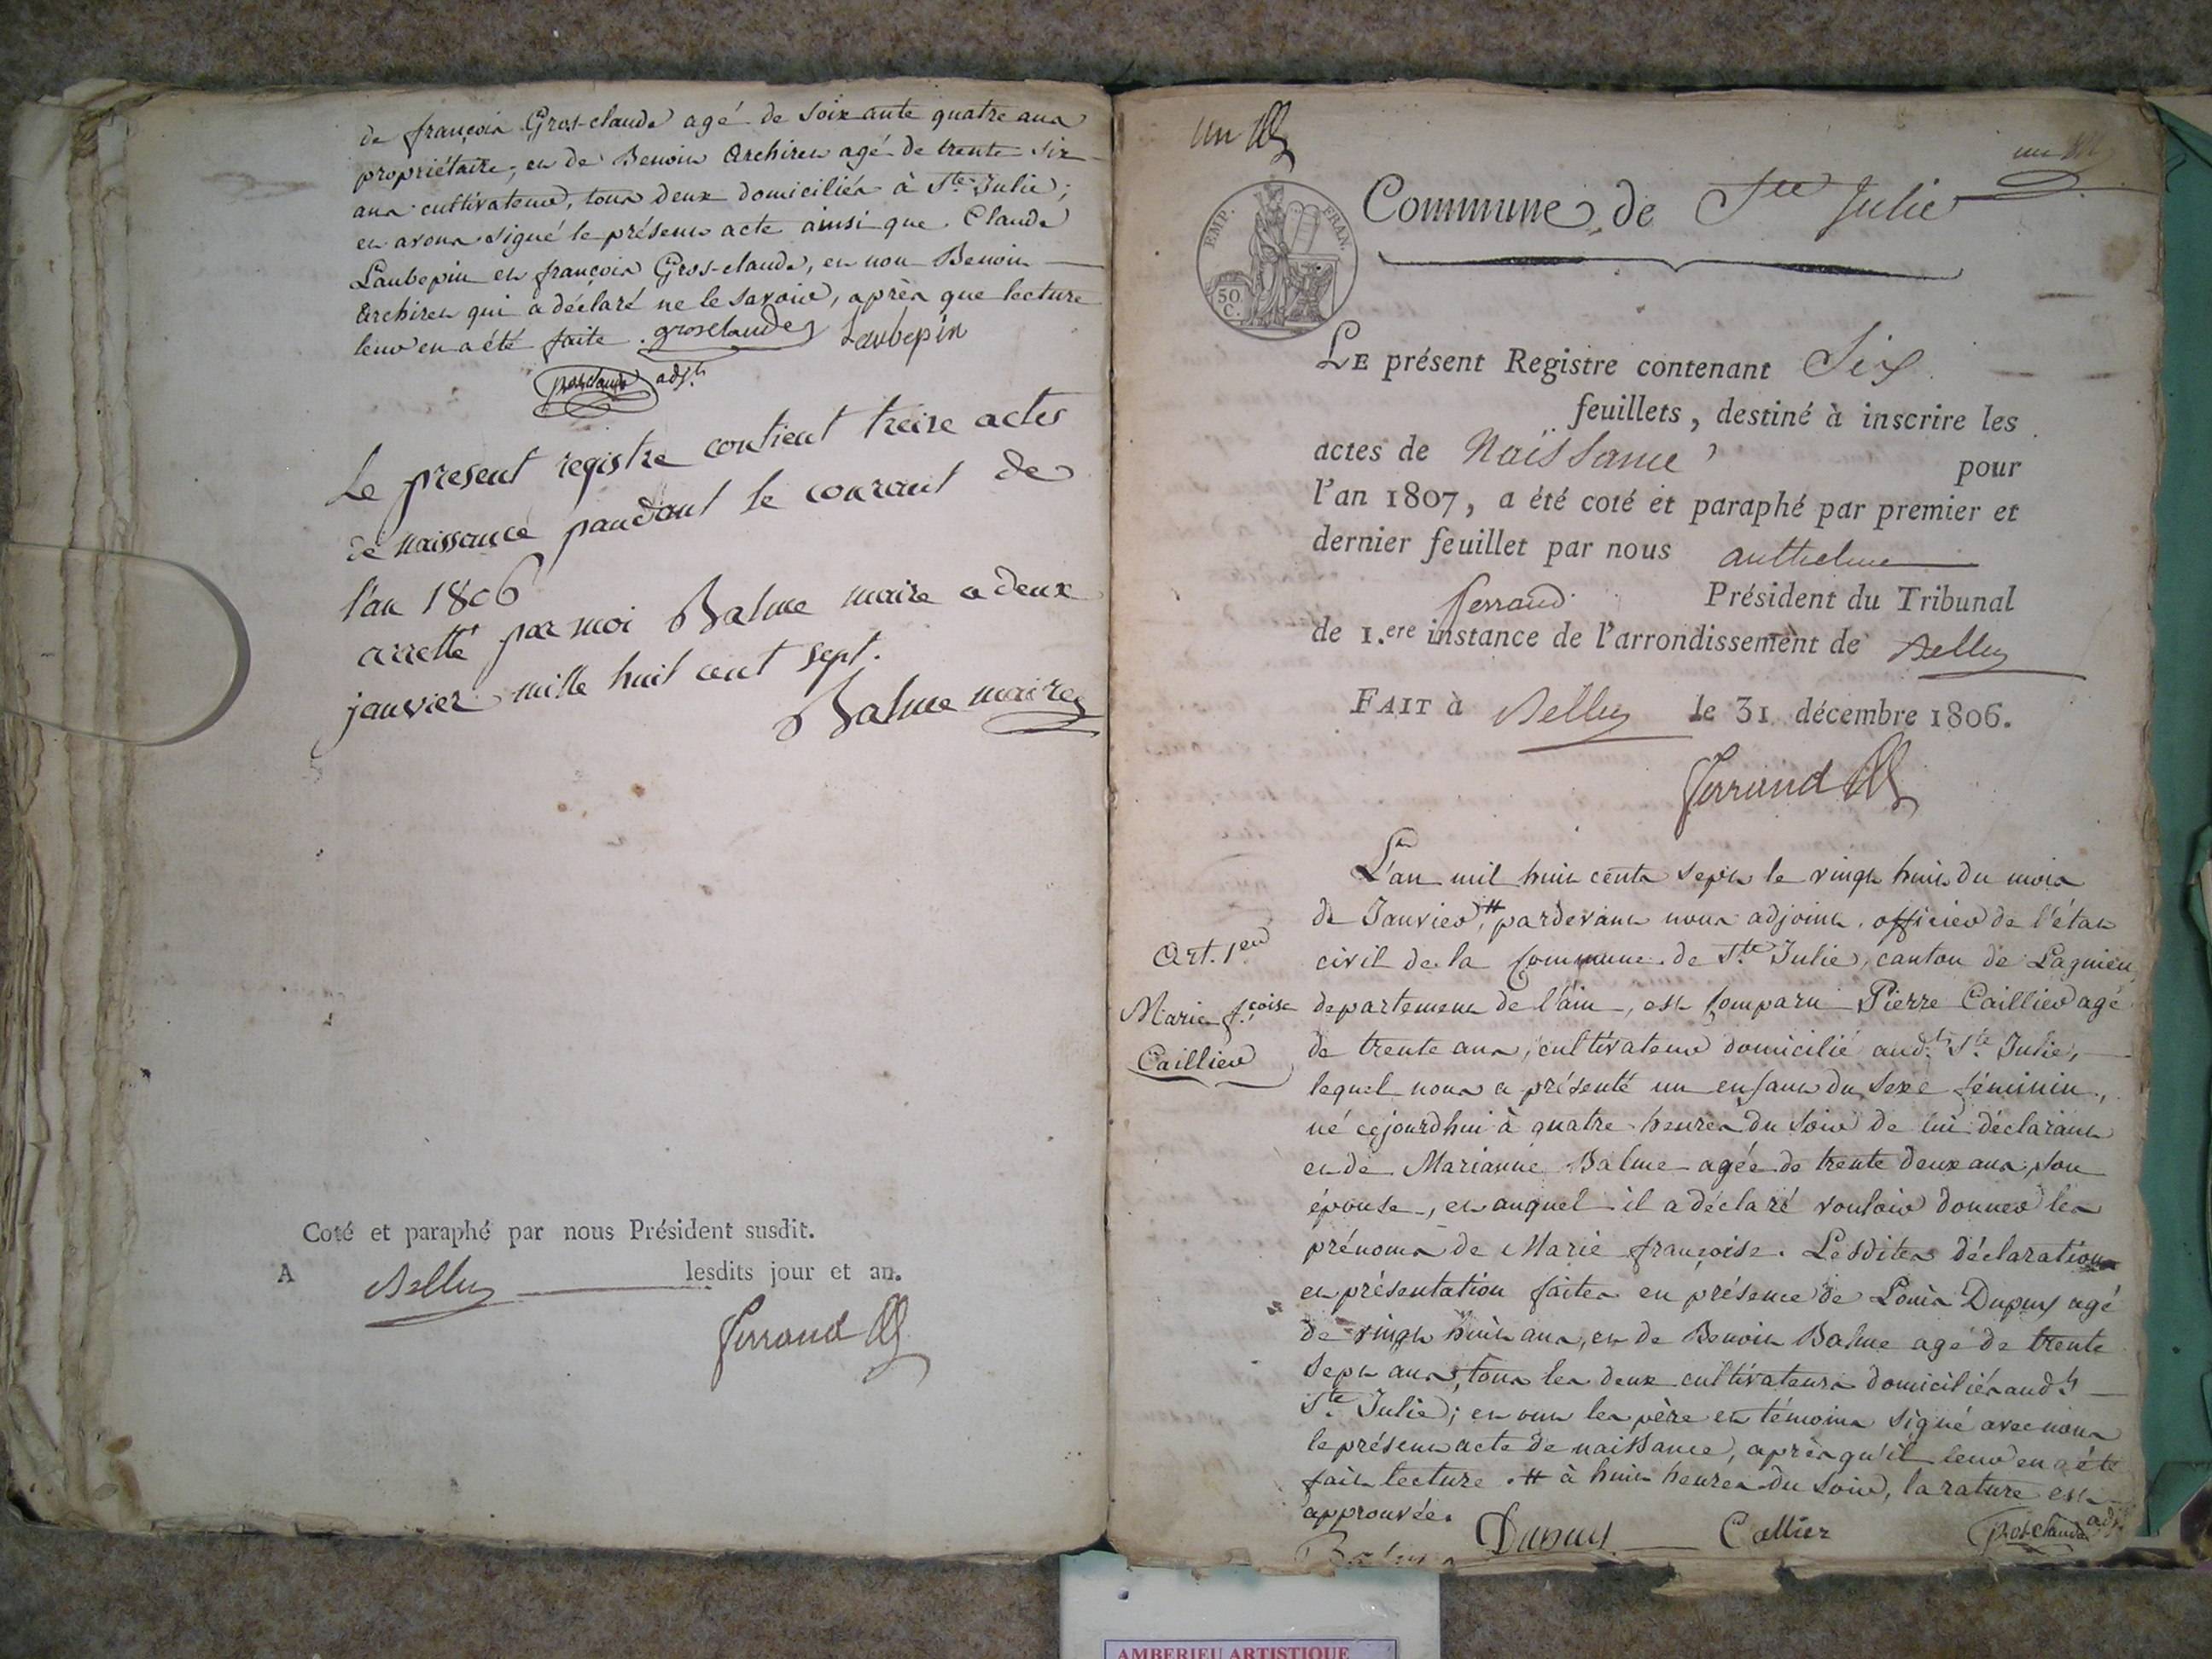 de françois Gros-claude agé de soixante quatre ans
propriétaire, et de Benoit Orchiret agé de trente six
ans cultivateur, tous deux domiciliés à Ste. Julie;
et avons signé le présent acte ainsi que Claude
Laubepin et françois Gros-claude, et non Benoit
Orchiret qui a déclaré ne le savoir, après que lecture
leur en a été faite. grosclaude Laubepin
grosclaude adjt.
Le present registre contient treize actes
de naissance pandant le courant de
l'an 1806
arretté par moi Balme maire a deux
janvier mille huit cent sept.
Balme maire
Coté et paraphé par nous Président susdit.
A Belley lesdits jour et an.
Ferrand
un
un
Commune de Ste Julie
EMP. FRAN.
50 C.
LE présent Registre contenant Six
feuillets, destiné à inscrire les
actes de Naissance pour
l'an 1807, a été coté et paraphé par premier et
dernier feuillet par nous anthelme
ferrand Président du Tribunal
de 1.ere instance de l'arrondissement de Belley
FAIT à Belley le 31 décembre 1806.
Ferrand
L'an mil huit cents sept le vingt huit du mois
de Janvier,# pardevant nous adjoint officier de l'état
civil de la Commune de Ste. Julie, canton de Lagnieu
Art. 1er
departement de l'ain, est comparu Pierre Caillier agé
Marie fçoise
Caillier
de trente ans, cultivateur domicilié audt. Ste. Julie,
lequel nous a présenté un enfant du sexe féminin,
né cejourdhui à quatre heures du soir de lui déclarant
et de Marianne Balme agée de trente deux ans, son
épouse, et auquel il a déclaré vouloir donner les
prénoms de Marie françoise. Lesdites déclaration
et présentation faites en présence de Louis Dupuy agé
de vingt huit ans, et de Benoit Balme agé de trente
sept ans, tous les deux cultivateurs domiciliés audt.
Ste. Julie; et ont les père et témoins signé avec nous
le présent acte de naissance, après qu'il leur en a été
fait lecture. # à huit heures du soir, la rature est
approuvée.
Dupuy Callier grosclaude adjt
Balme
AMBERIEU ARTISTIQUE